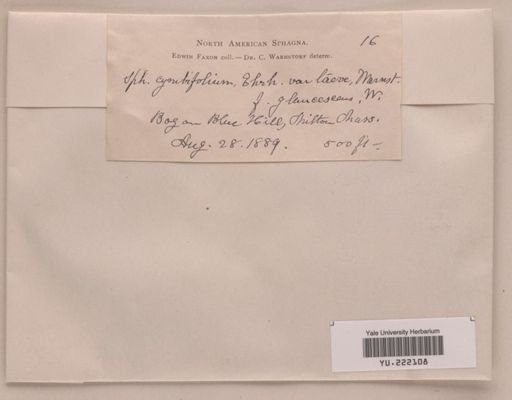 North American Sphagna. 16
Edwin Faxon coll. — Dr. C. Warnstorf determ.
Sph. cymbifolium, Ehrh. var laeve, Warnst.
f. glaucescens, W.
Bog on Blue Hill, Milton Mass.
Aug. 28. 1889. 500 ft —
Yale University Herbarium
YU.222108